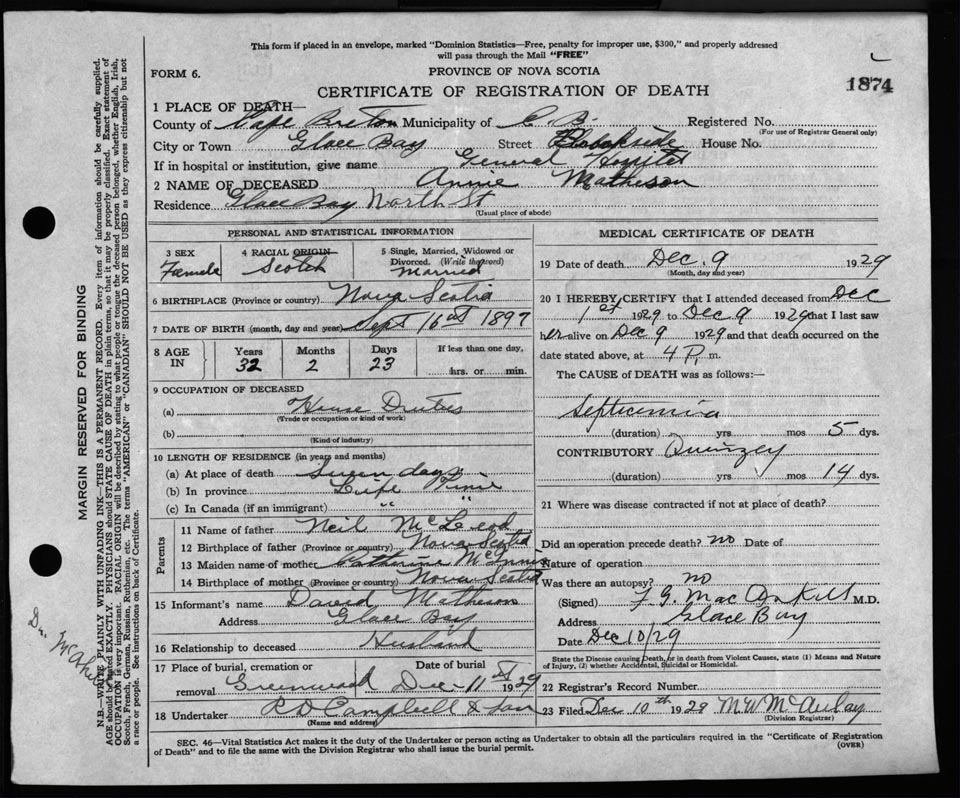 This form if placed in an envelope, marked "Dominion Statistics—Free, penalty for improper use, $300," and properly addressed
will pass through the Mail "FREE"
FORM 6.
PROVINCE OF NOVA SCOTIA
1874
CERTIFICATE OF REGISTRATION OF DEATH
1 PLACE OF DEATH—
County of Cape Breton Municipality of C B. Registered No.
(For use of Registrar General only)
City or Town Glace Bay Street Brookside House No.
If in hospital or institution, give name General Hospital
2 NAME OF DECEASED Annie Matheson
Residence Glace Bay North St
(Usual place of abode)
PERSONAL AND STATISTICAL INFORMATION
3 SEX Female
4 RACIAL ORIGIN Scotch
5 Single, Married, Widowed or Divorced. (Write the word) Married
6 BIRTHPLACE (Province or country) Nova Scotia
7 DATE OF BIRTH (month, day and year) Sept 16th 1897
8 AGE IN Years Months Days If less than one day,
32 2 23 hrs. or min.
9 OCCUPATION OF DECEASED
(a) House Duties
(Trade or occupation or kind of work)
(b)
(Kind of industry)
10 LENGTH OF RESIDENCE (in years and months)
(a) At place of death days
(b) In province Life Time
(c) In Canada (if an immigrant) " "
Parents
11 Name of father Neil McLeod
12 Birthplace of father (Province or country) Nova Scotia
13 Maiden name of mother Catherine McInnis
14 Birthplace of mother (Province or country) Nova Scotia
15 Informant's name David Matheson
Address Glace Bay
16 Relationship to deceased Husband
17 Place of burial, cremation or removal Greenwood
Date of burial Dec 11th 1929
18 Undertaker P D Campbell & Son
(Name and address)
MEDICAL CERTIFICATE OF DEATH
19 Date of death Dec. 9 1929
(Month, day and year)
20 I HEREBY CERTIFY that I attended deceased from Dec
1st 1929 to Dec 9 1929 that I last saw
her alive on Dec 9 1929 and that death occurred on the
date stated above, at 4 P. m.
The CAUSE of DEATH was as follows:—
Septicemia
(duration) yrs mos 5 dys.
CONTRIBUTORY Quinzey
(duration) yrs mos 14 dys.
21 Where was disease contracted if not at place of death?
Did an operation precede death? no Date of
Nature of operation
Was there an autopsy? no
(Signed) M.D.
Address Glace Bay
Date Dec 10/29
State the Disease causing Death, or in death from Violent Causes, state (1) Means and Nature
of Injury, (2) whether Accidental, Suicidal or Homicidal.
22 Registrar's Record Number
23 Filed Dec 10th 1929 M W McAulay
(Division Registrar)
SEC. 46—Vital Statistics Act makes it the duty of the Undertaker or person acting as Undertaker to obtain all the particulars required in the "Certificate of Registration
of Death" and to file the same with the Division Registrar who shall issue the burial permit.
(OVER)
MARGIN RESERVED FOR BINDING
N.B.—WRITE PLAINLY WITH UNFADING INK—THIS IS A PERMANENT RECORD. Every item of information should be carefully supplied.
AGE should be stated EXACTLY. PHYSICIANS should STATE CAUSE OF DEATH in plain terms, so that it may be properly classified. Exact statement of
OCCUPATION is very important. RACIAL ORIGIN will be described by stating to what people or tongue the deceased person belonged, whether English, Irish,
Scotch, French, German, Russian, Ruthenian, etc. The terms "AMERICAN" or "CANADIAN" SHOULD NOT BE USED as they express citizenship but not
a race or people. See instructions on back of Certificate.
Dr.